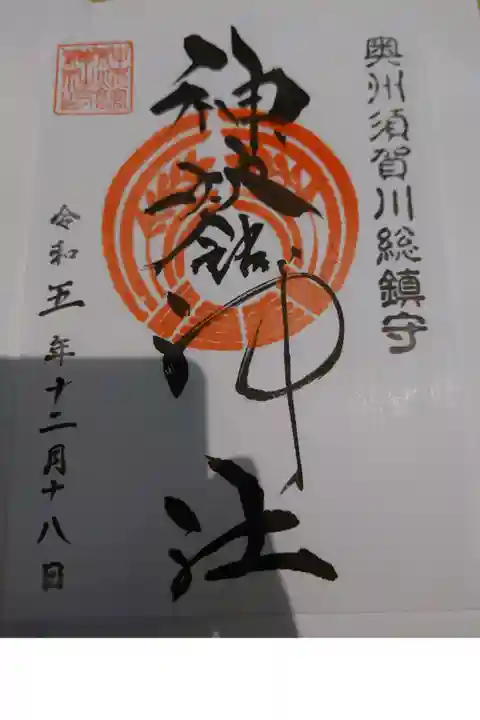 奥州須賀川総鎮守
神炊館神社
令和五年十二月十八日